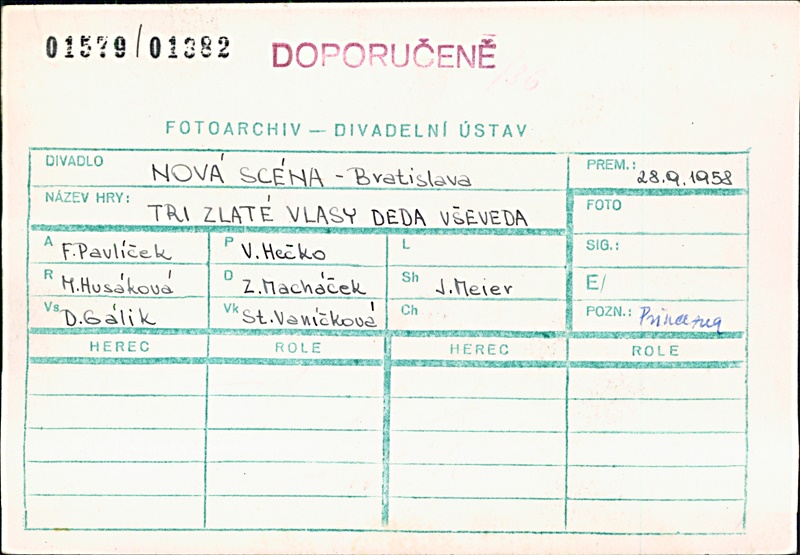 01579/01382 DOPORUČENĚ
FOTOARCHIV — DIVADELNÍ ÚSTAV
DIVADLO NOVÁ SCÉNA - Bratislava PREM.: 28.9.1958
NÁZEV HRY: TRI ZLATÉ VLASY DEDA VŠEVEDA FOTO
A F. Pavlíček P V. Hečko L SIG.:
R M. Husáková D Z. Macháček Sh J. Meier E/
Vs D. Gálik Vk St. Vaníčková Ch POZN.:
HEREC ROLE HEREC ROLE